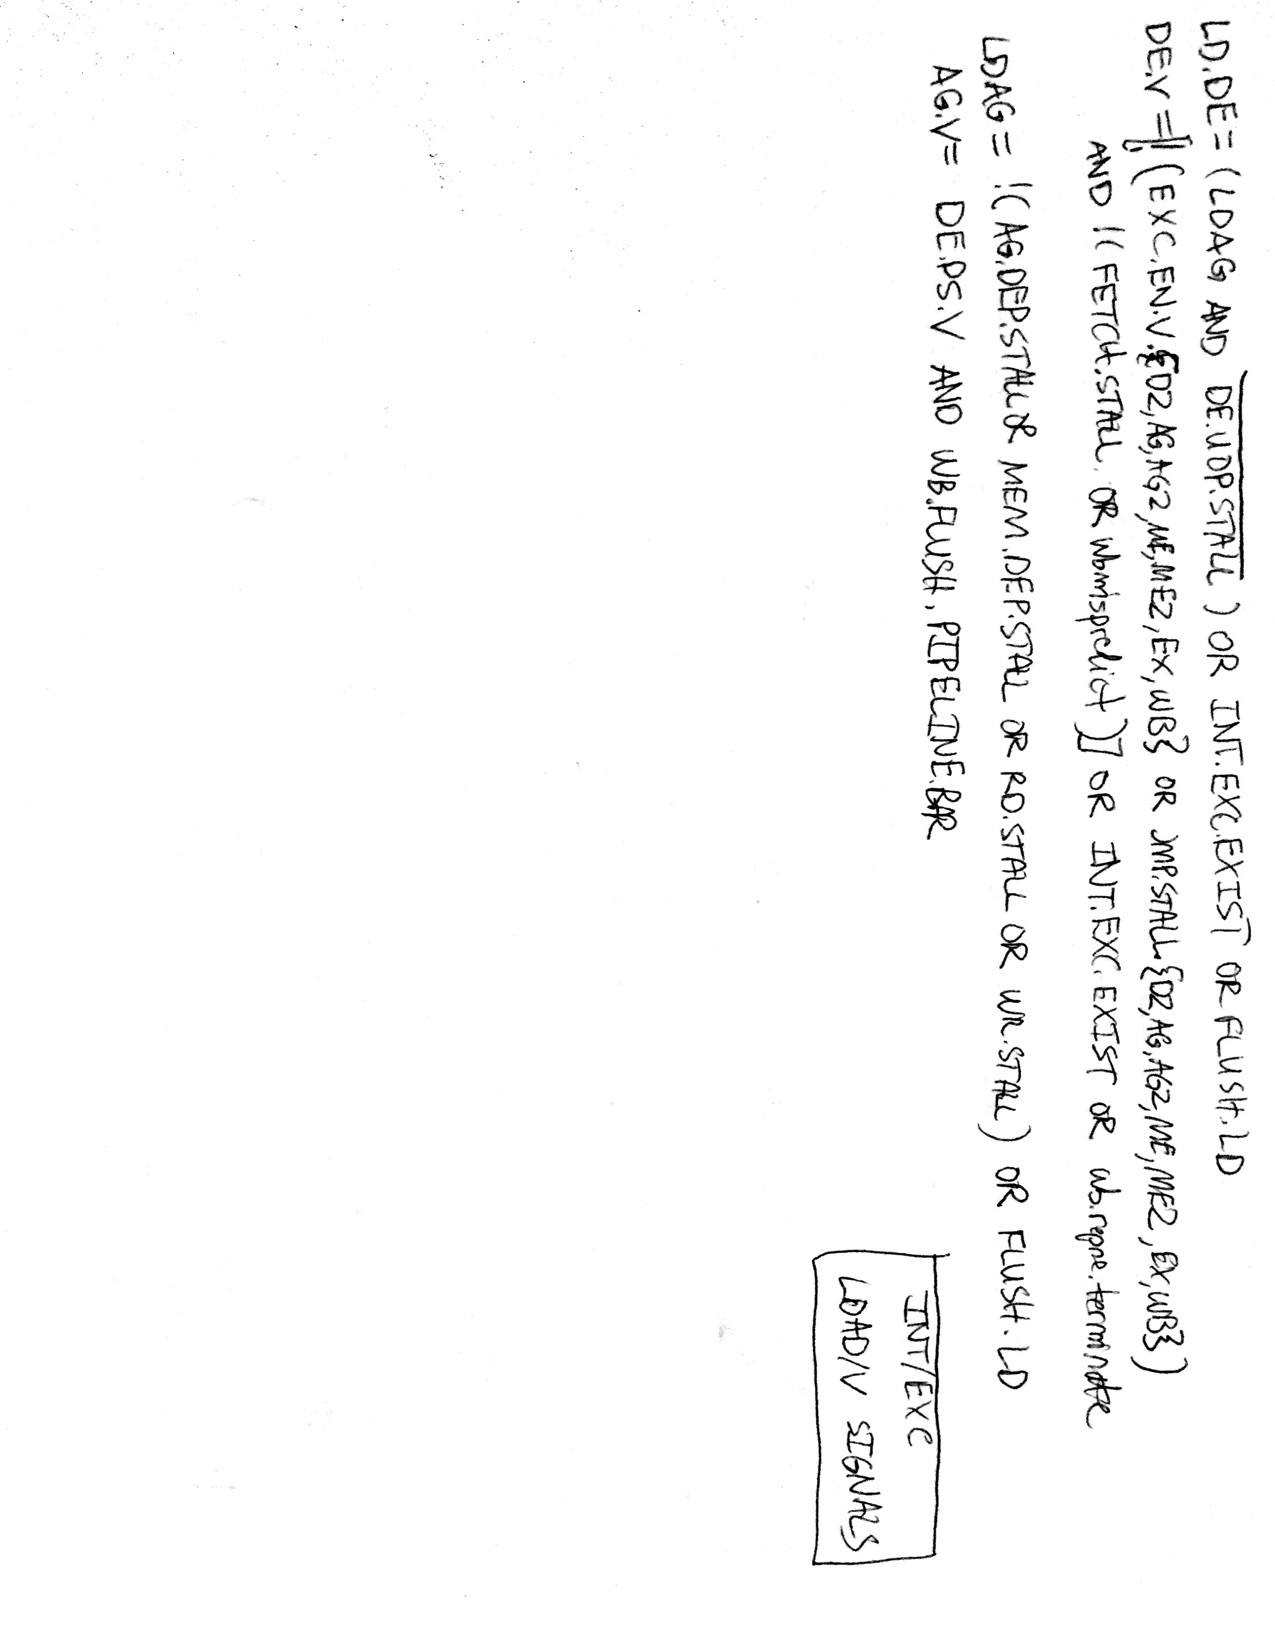 LD.DE = (LDAG AND DE.UOP.STALL) OR INT.EXC.EXIST OR FLUSH.LD
DE.V = [!(EXC.EN.V.{D2,AG,AG2,ME,ME2,EX,WB} OR JMP.STALL.{D2,AG,AG2,ME,ME2,EX,WB})
AND !(FETCH.STALL OR wb.mispredict)] OR INT.EXC.EXIST OR wb.repne.terminate
LDAG = !(AG.DEP.STALL OR MEM.DEP.STALL OR RD.STALL OR WR.STALL) OR FLUSH.LD
AG.V = DE.PS.V AND WB.FLUSH.PIPELINE.BAR
INT/EXC
LOAD/V SIGNALS